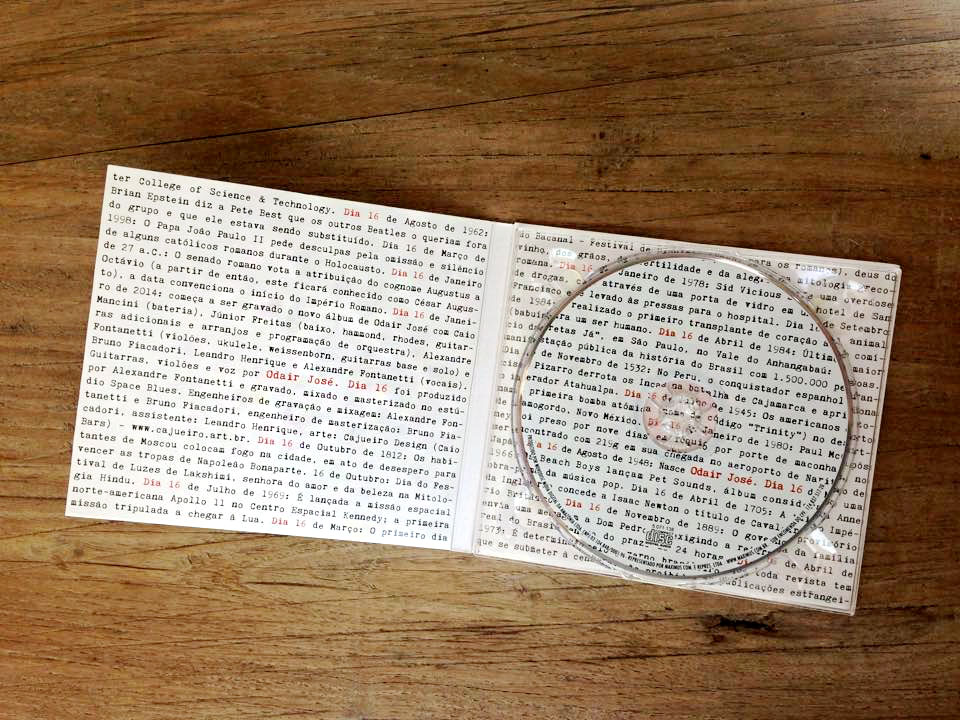 ter College of Science & Technology. Dia 16 de Agosto de 1962:
Brian Epstein diz a Pete Best que os outros Beatles o queriam fora
do grupo e que ele estava sendo substituído. Dia 16 de Março de
1998: O Papa João Paulo II pede desculpas pela omissão e silêncio
de alguns católicos romanos durante o Holocausto. Dia 16 de Janeiro
de 27 a.C.: O senado romano vota a atribuição do cognome Augustus a
Octávio (a partir de então, este ficará conhecido como César Augus-
to), a data convenciona o início do Império Romano. Dia 16 de Janei-
ro de 2014: começa a ser gravado o novo álbum de Odair José com Caio
Mancini (bateria), Júnior Freitas (baixo, hammond, rhodes, guitar-
ras adicionais e arranjos e programação de orquestra), Alexandre
Fontanetti (violões, ukulele, Weissenborn, guitarras base e solo) e
Bruno Fiacadori, Leandro Henrique e Alexandre Fontanetti (vocais).
Guitarras, violões e voz por Odair José. Dia 16 foi produzido
por Alexandre Fontanetti e gravado, mixado e masterizado no estú-
dio Space Blues. Engenheiros de gravação e mixagem: Alexandre Fon-
tanetti e Bruno Fiacadori, engenheiro de masterização: Bruno Fia-
cadori, assistente: Leandro Henrique, arte: Cajueiro Design (Caio
Bars) - www.cajueiro.art.br. Dia 16 de Outubro de 1812: Os habi-
tantes de Moscou colocam fogo na cidade, em ato de desespero para
vencer as tropas de Napoleão Bonaparte. 16 de Outubro: Dia do Fes-
tival de Luzes de Lakshimi, senhora do amor e da beleza na Mitolo-
gia Hindu. Dia 16 de Julho de 1969: É lançada a missão espacial
norte-americana Apollo 11 no Centro Espacial Kennedy; a primeira
missão tripulada a chegar à Lua. Dia 16 de Março: O primeiro dia
do Bacanal - Festival de para os romanos, deus do
vinho, dos grãos, da fertilidade e da aleg mitologia greco-
romana. Dia 16 de Janeiro de 1978: Sid Vicious uma overdose
de drogas, através de uma porta de vidro em hotel de San
Francisco e é levado às pressas para o hospital. Dia 16 de Setembro
de 1984: realizado o primeiro transplante de coração animal
babuín para um ser humano. Dia 16 de Abril de 1984: Últim comí-
"Diretas Já", em São Paulo, no Vale do Anhangabaú:
manifestação pública da história do Brasil com 1.500.000 pe
de Novembro de 1532: No Peru, o conquistador espanhol
Pizarro derrota os Incas na batalha de Cajamarca e apri
erador Atahualpa. Dia 16 de Julho de 1945: Os americanos
primeira bomba atômica código "Trinity") no de
mogordo, Novo México. Dia 16 de Janeiro de 1980: Paul Mc
preso por nove dias em Tóquio por porte de maconha
ncontrado com 219g em sua chegada no aeroporto de Narit
Dia 16 de Agosto de 1948: Nasce Odair José. Dia 16 d
1966 Beach Boys lançam Pet Sounds, álbum consid
obra-p da música pop. Dia 16 de Abril de 1705: A Anne
da Ingl concede a Isaac Newton o título de Caval Impé-
rio Britâ Dia 16 de Novembro de 1889: O gove provisório
envia uma me a Dom Pedr exigindo a re da família
real do Brasil prazo 24 horas de Abril de
1973: É determin toda revista tem
que se submeter à cens publicações estrangei-
5 071 138
REPRESENTADO POR MAXIMUS COM. E REPRES. LTDA.